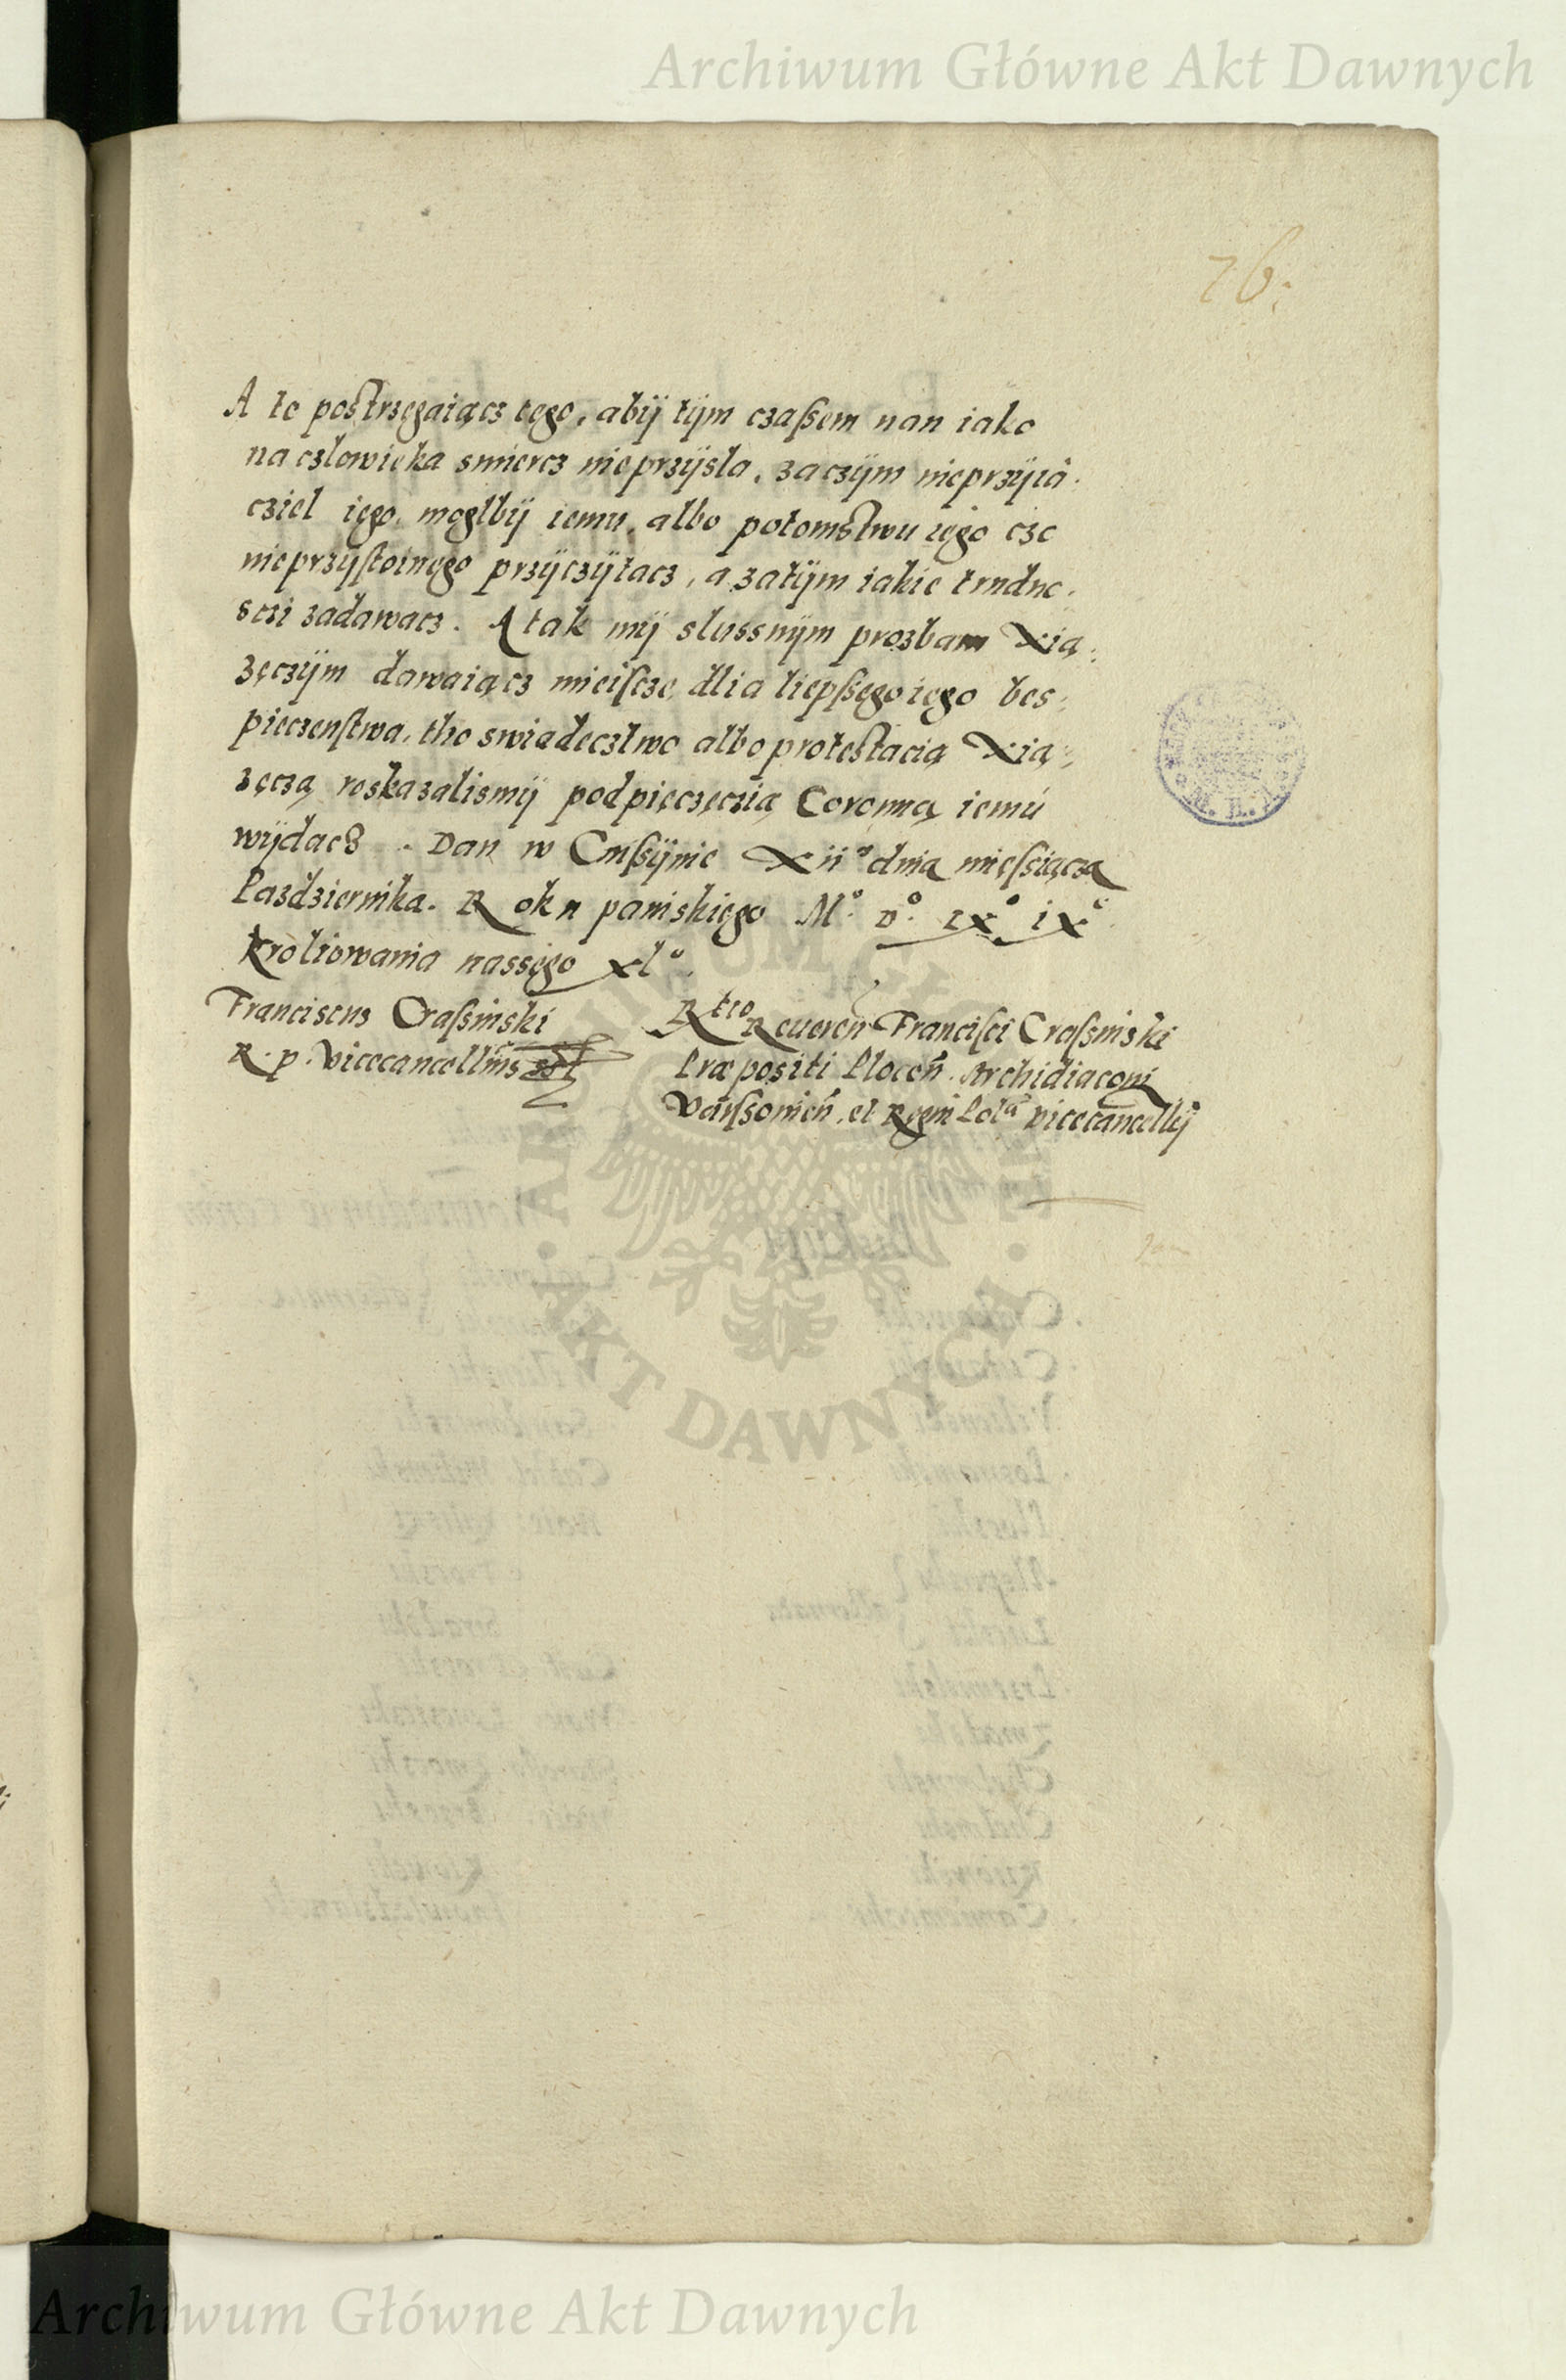 Archiwum Główne Akt Dawnych
76.
A to postrzegaiącz tego, abÿ tÿm czaſsem nan iako
na czlowieka smiercz nieprzÿsla, zaczÿm nieprzÿia
cziel iego, moglbÿ iemu, albo potomstwu iego czo
nieprzÿſtoinego przÿczÿtacz, a zatÿm iakie trudno
sczi zadawacz. A tak mÿ slussnÿm prozbam Xią:
zęczÿm dawaiącz mieiſcze, dlia liepſsego iego bes:
pieczenſtwa, tho swiadecztwo albo protestacią Xią:
zęczą roskazalismÿ pod pięczęczią Coronną iemú
wÿdacz. Dan w Cnſsÿnie Xii° dnia mieſsiącza
Pazdziernika. Roku paniskiego M.° D.° LX° iX°
Kròliowania nassego xl°.
Franciscus Craſsinski
R. p. Vicecancellius sst
Rtio Reueren Franciſci Craſsinski
Præpositi Plocen. Archidiaconi
Varſsouien. et Regni Pola vicecancellÿ
ARCHIWUM GŁÓWNE
AKT DAWNYCH
Archiwum Główne Akt Dawnych